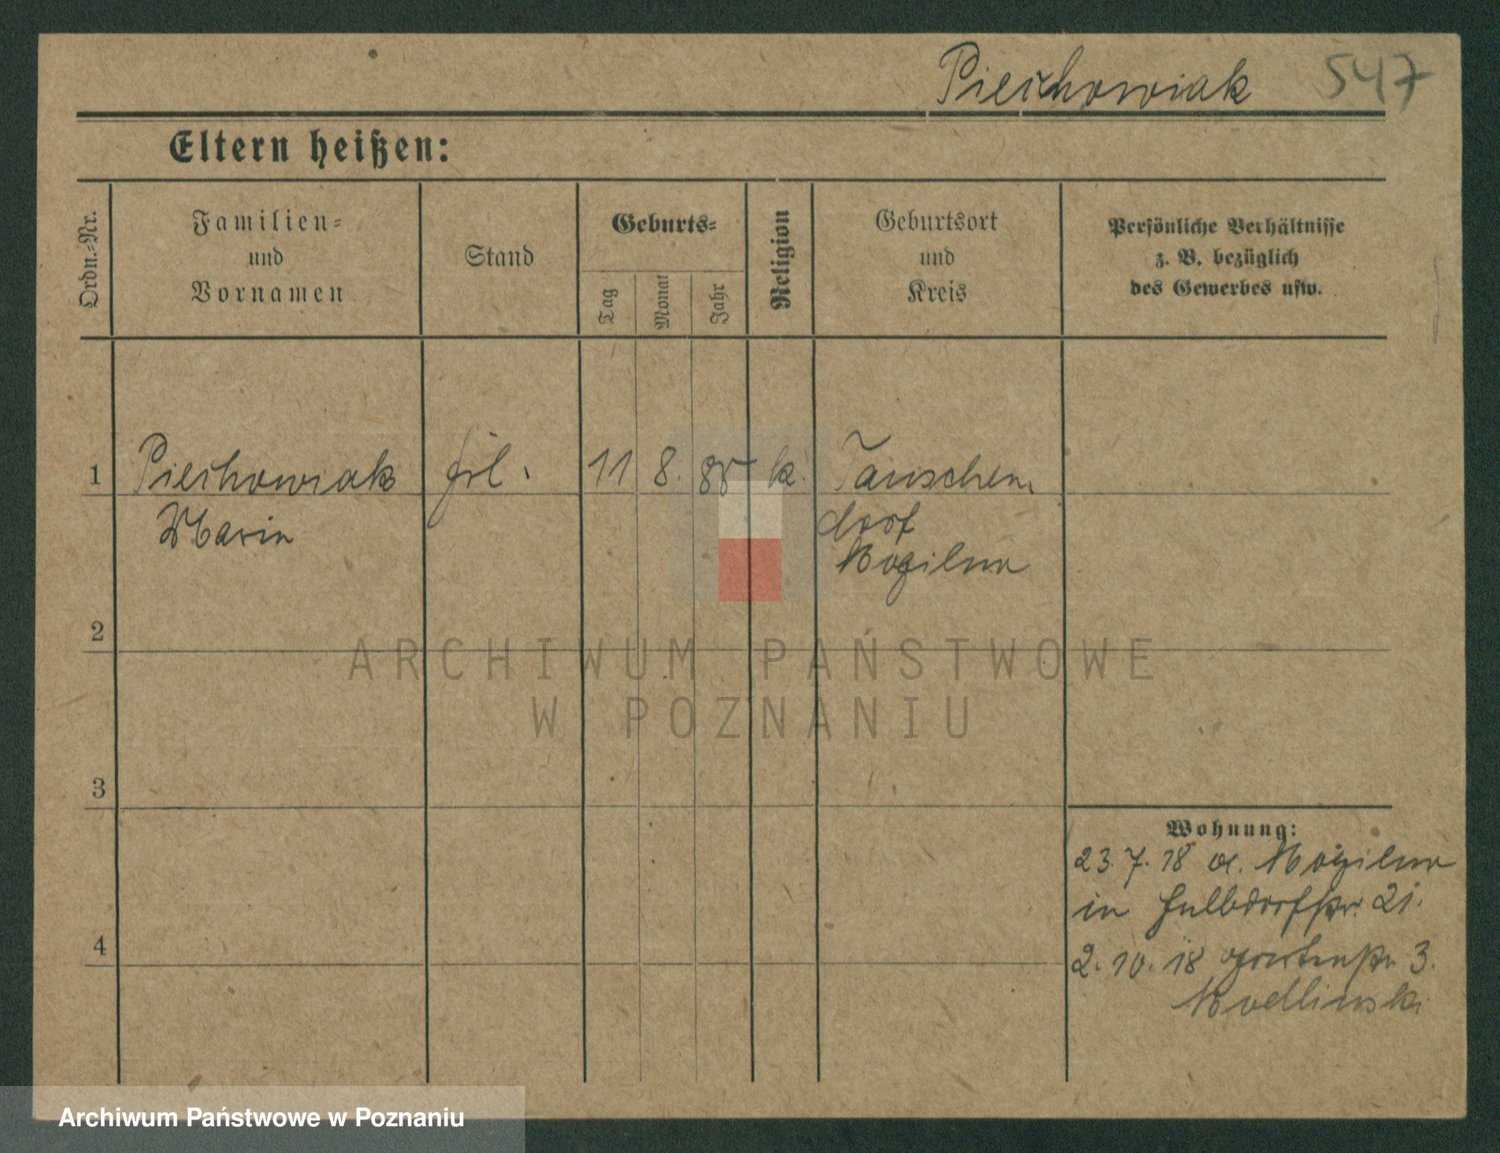 Piechowiak 547
Eltern heißen:
Ordn.-Nr.
Familien-
und
Vornamen
Stand
Geburts-
Tag
Monat
Jahr
Religion
Geburtsort
und
Kreis
Persönliche Verhältnisse
z. B. bezüglich
des Gewerbes usw.
1 Piechowiak frl. 11 8. 85 k. Tauschen
Maria dorf
Mogilno
2
3
4
Wohnung:
23. 7. 18 a. Mogilno
in Helldorfstr. 21.
2. 10. 18 Gartenstr 3.
Modlinski
ARCHIWUM PAŃSTWOWE
W POZNANIU
Archiwum Państwowe w Poznaniu